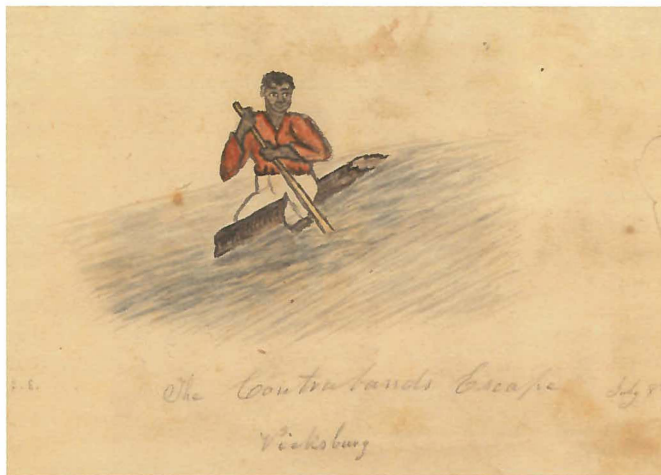 The Contrabands Escape July 8
Vicksburg